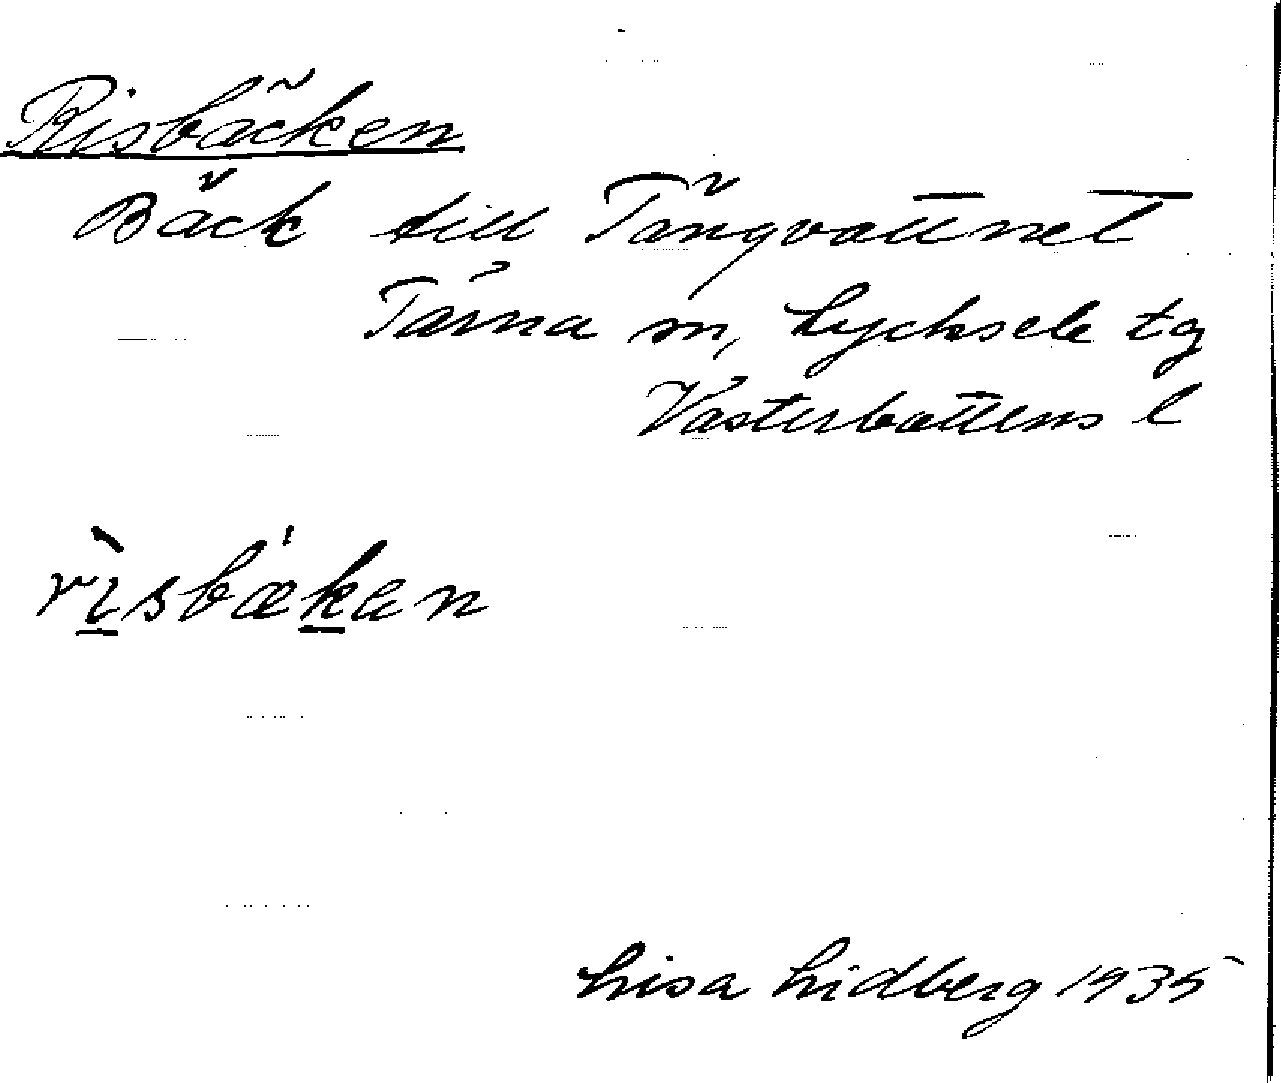 Risbäcken
Bäck till Tängvattnet
Tärna sn, Lycksele tg
Västerbottens l
rìsbækan
Lisa Lidberg 1935